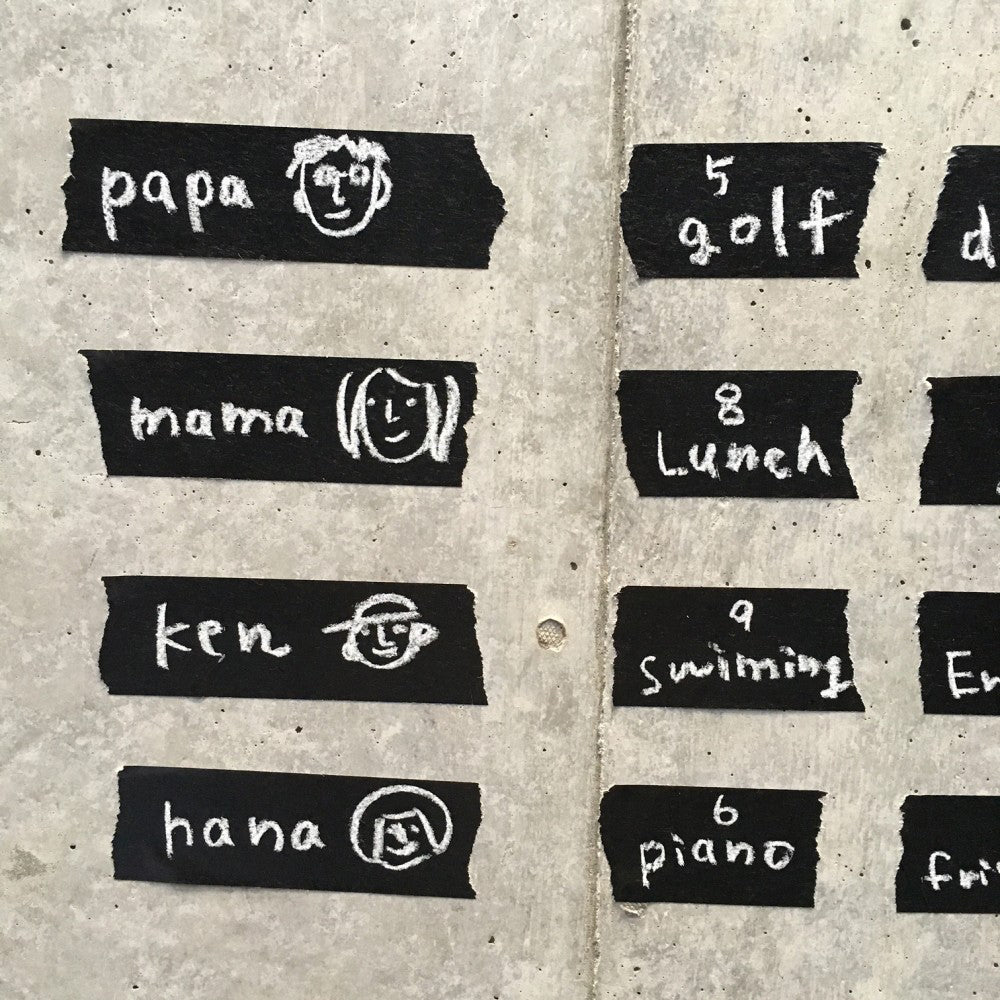 papa
5
golf
d
mama
8
Lunch
ken
9
swiming
En
hana
6
piano
fri